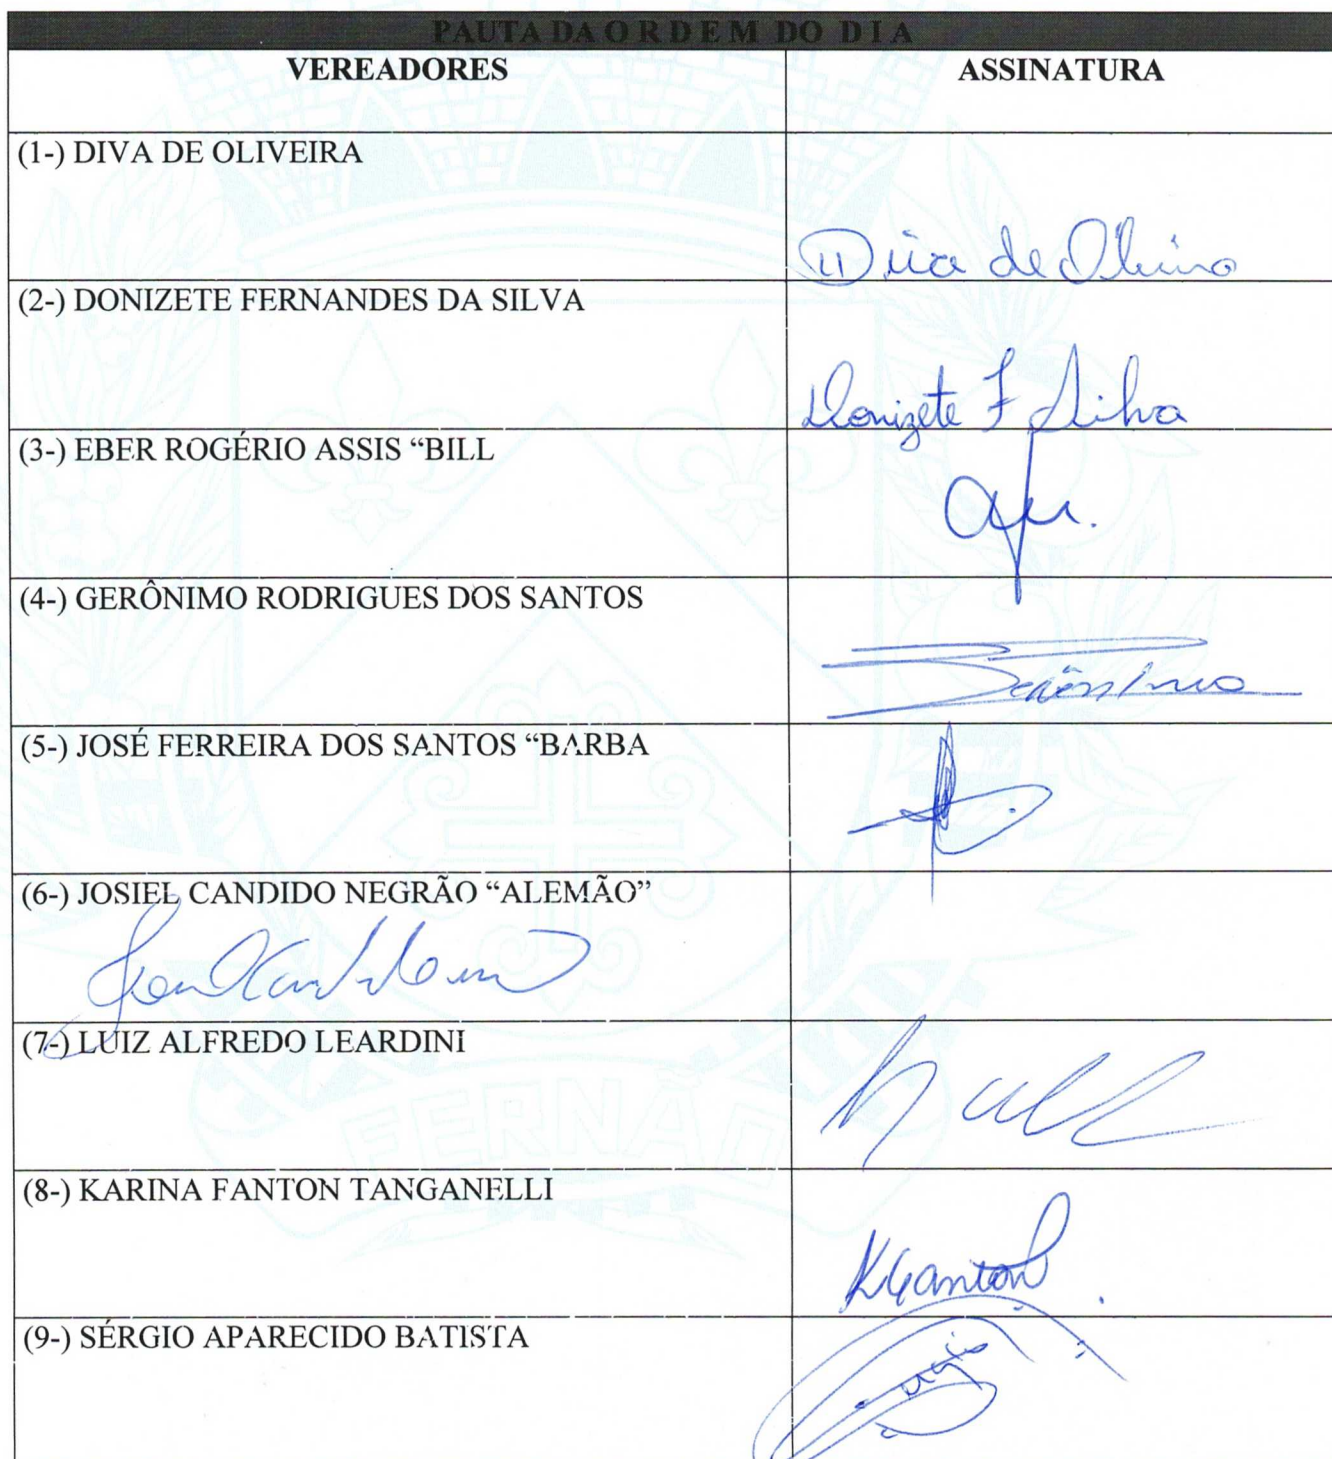 PAUTA DA O R D E M DO D I A
VEREADORES
ASSINATURA
(1-) DIVA DE OLIVEIRA
Diva de Oliveira
(2-) DONIZETE FERNANDES DA SILVA
Donizete F Silva
(3-) EBER ROGÉRIO ASSIS “BILL
(4-) GERÔNIMO RODRIGUES DOS SANTOS
Gerônimo
(5-) JOSÉ FERREIRA DOS SANTOS “BARBA
(6-) JOSIEL CANDIDO NEGRÃO “ALEMÃO”
(7-) LUIZ ALFREDO LEARDINI
FERNÃO
(8-) KARINA FANTON TANGANELLI
KFanton
(9-) SÉRGIO APARECIDO BATISTA
Sérgio